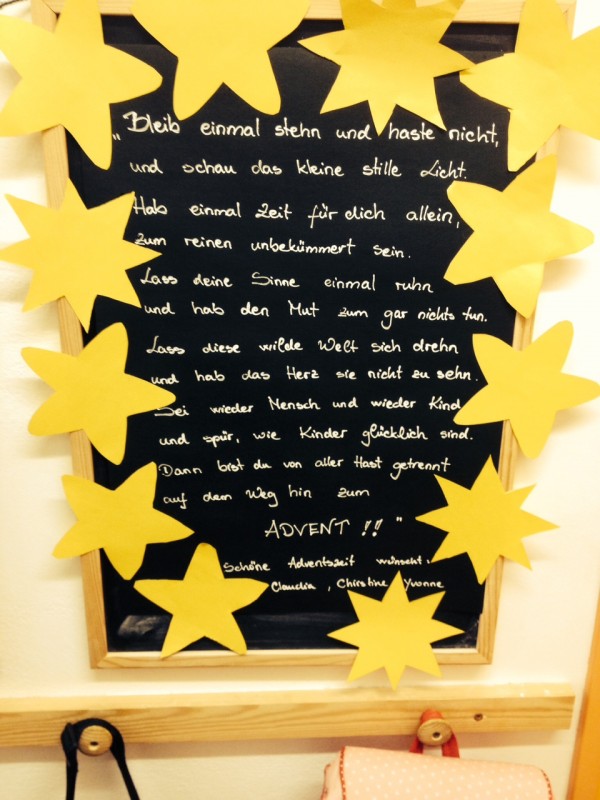 „Bleib einmal stehn und haste nicht,
und schau das kleine stille Licht.
Hab einmal Zeit für dich allein,
zum reinen unbekümmert sein.
Lass deine Sinne einmal ruhn
und hab den Mut zum gar nichts tun.
Lass diese wilde Welt sich drehn
und hab das Herz sie nicht zu sehn.
Sei wieder Mensch und wieder Kind
und spür, wie Kinder glücklich sind.
Dann bist du von aller Hast getrennt
auf dem Weg hin zum
ADVENT !! "
Schöne Adventszeit wünscht:
Claudia, Christine Yvonne